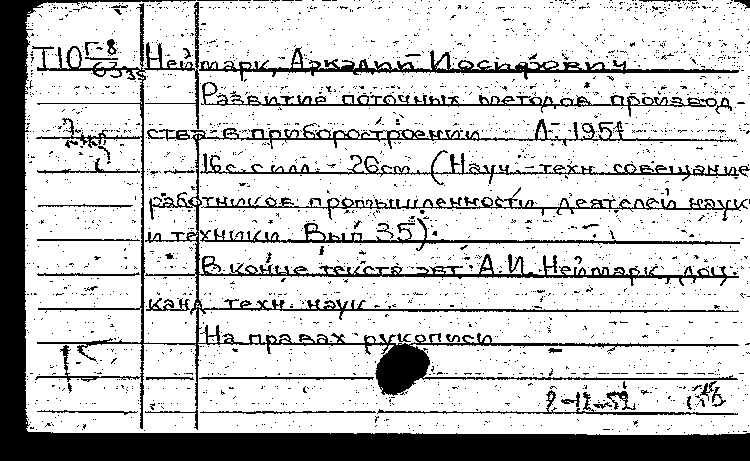 Т10 Г-8 Неймарк, Аркадий Иосифович
Развитие поточных методов производ-
ства в приборостроении Л., 1951
16с. с илл. 26см. (Науч.-техн. совещание
работников промышленности, деятелей наук
и техники Вып 35).
В конце текста авт: А.И. Неймарк, доц.
канд техн. наук.
На правах рукописи
8-12-52